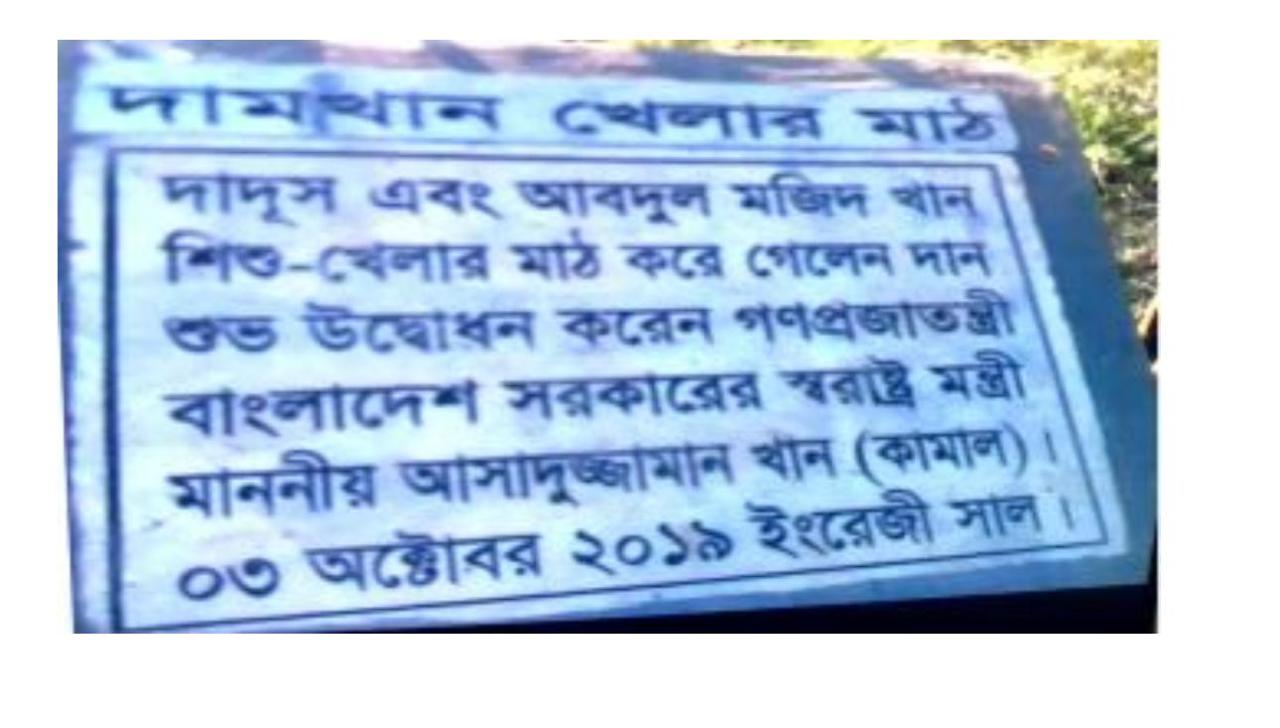 দামখান খেলার মাঠ
দাদূস এবং আবদুল মজিদ খান
শিশু-খেলার মাঠ করে গেলেন দান
শুভ উদ্বোধন করেন গণপ্রজাতন্ত্রী
বাংলাদেশ সরকারের স্বরাষ্ট্র মন্ত্রী
মাননীয় আসাদুজ্জামান খান (কামাল)।
০৩ অক্টোবর ২০১৯ ইংরেজী সাল।